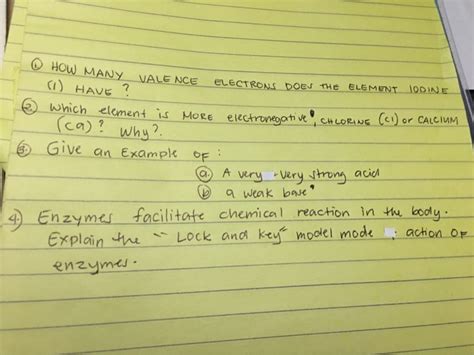 ① HOW MANY VALENCE ELECTRONS DOES THE ELEMENT IODINE
(I) HAVE ?
② Which element is MORE electronegative, CHLORINE (Cl) or CALCIUM
(Ca)? Why?.
③ Give an Example OF :
ⓐ A very very strong acid
ⓑ a weak base
4) Enzymes facilitate chemical reaction in the body.
Explain the "Lock and Key" model mode : action OF
enzymes.